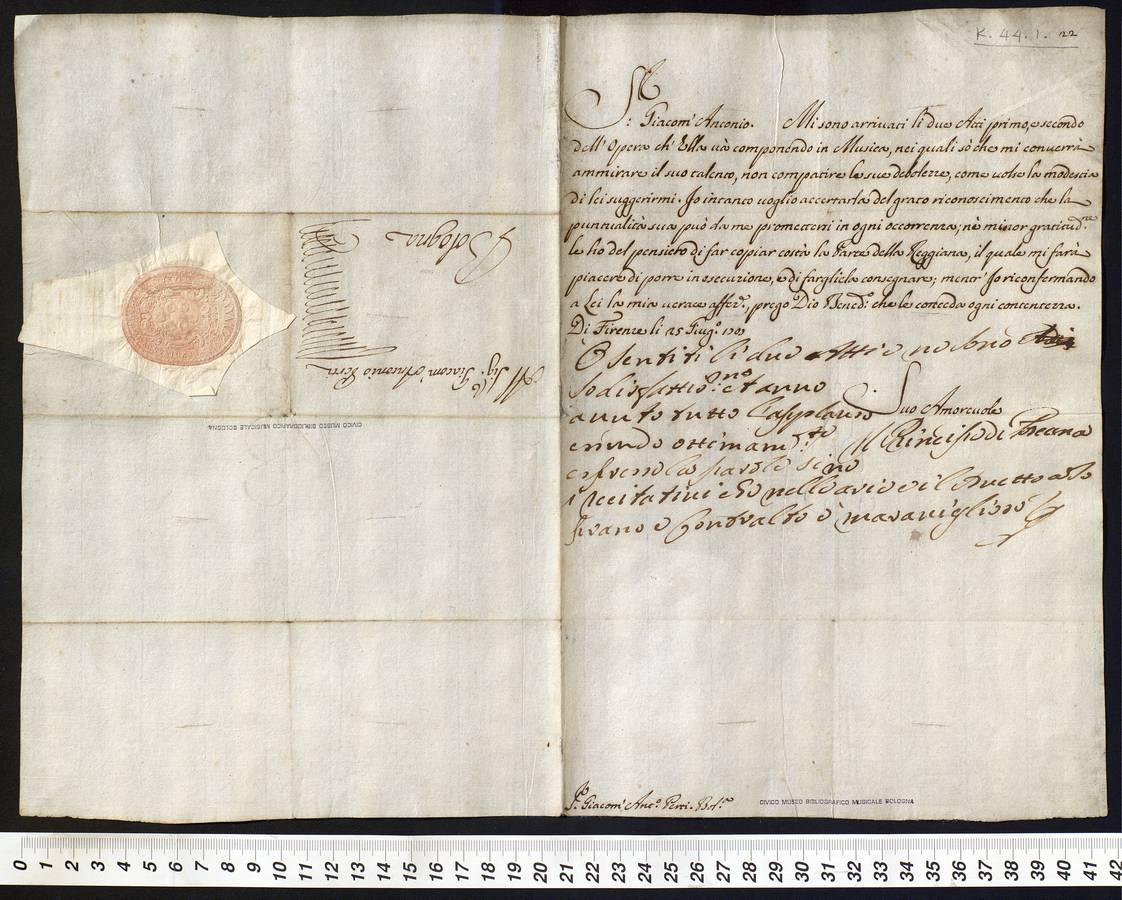 K. 44. 1. 22
S.r Giacom' Antonio. Mi sono arrivati li due Atti primo, e secondo
dell'Opera ch'Ella và componendo in Musica, nei quali sò che mi converrà
ammirare il suo talento, non compatire le sue debolezze, come volse la modestia
di lei suggerirmi. Io intanto voglio accertarla del grato riconoscimento che la
puntualità sua può da me promettersi in ogni occorrenza; nè minor gratitud.ne
le ho del pensiero di far copiar costà la Parte della Reggiana, il quale mi farà
piacere di porre in esecuzione, e di fargliela consegnare; mentr' Io riconfermando
a Lei la mia verace affez.e, prego Dio Bened.o che le conceda ogni contentezza.
Di Firenze li 25 Giug.o 170
O sentiti li due Atti e ne sono
sodisfattiss.mo et anno
avuto tutto l'applauso
essendo ottimam.te
espresse le parole si ne
i recitativi che nelle arie e il Duetto a So
prano e Contralto è maraviglioso
Suo Amorevole
Il Principe di Toscana
S.r Giacom' Ant.o Perti. Bol.a
CIVICO MUSEO BIBLIOGRAFICO MUSICALE BOLOGNA
Al Sig.r Giacom' Antonio Perti
Bologna
CIVICO MUSEO BIBLIOGRAFICO MUSICALE BOLOGNA
0 1 2 3 4 5 6 7 8 9 10 11 12 13 14 15 16 17 18 19 20 21 22 23 24 25 26 27 28 29 30 31 32 33 34 35 36 37 38 39 40 41 42